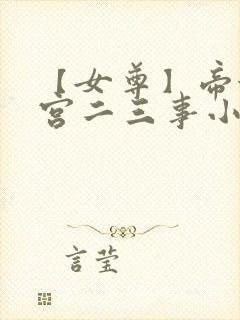 【女尊】帝
宫二三事小
言莹